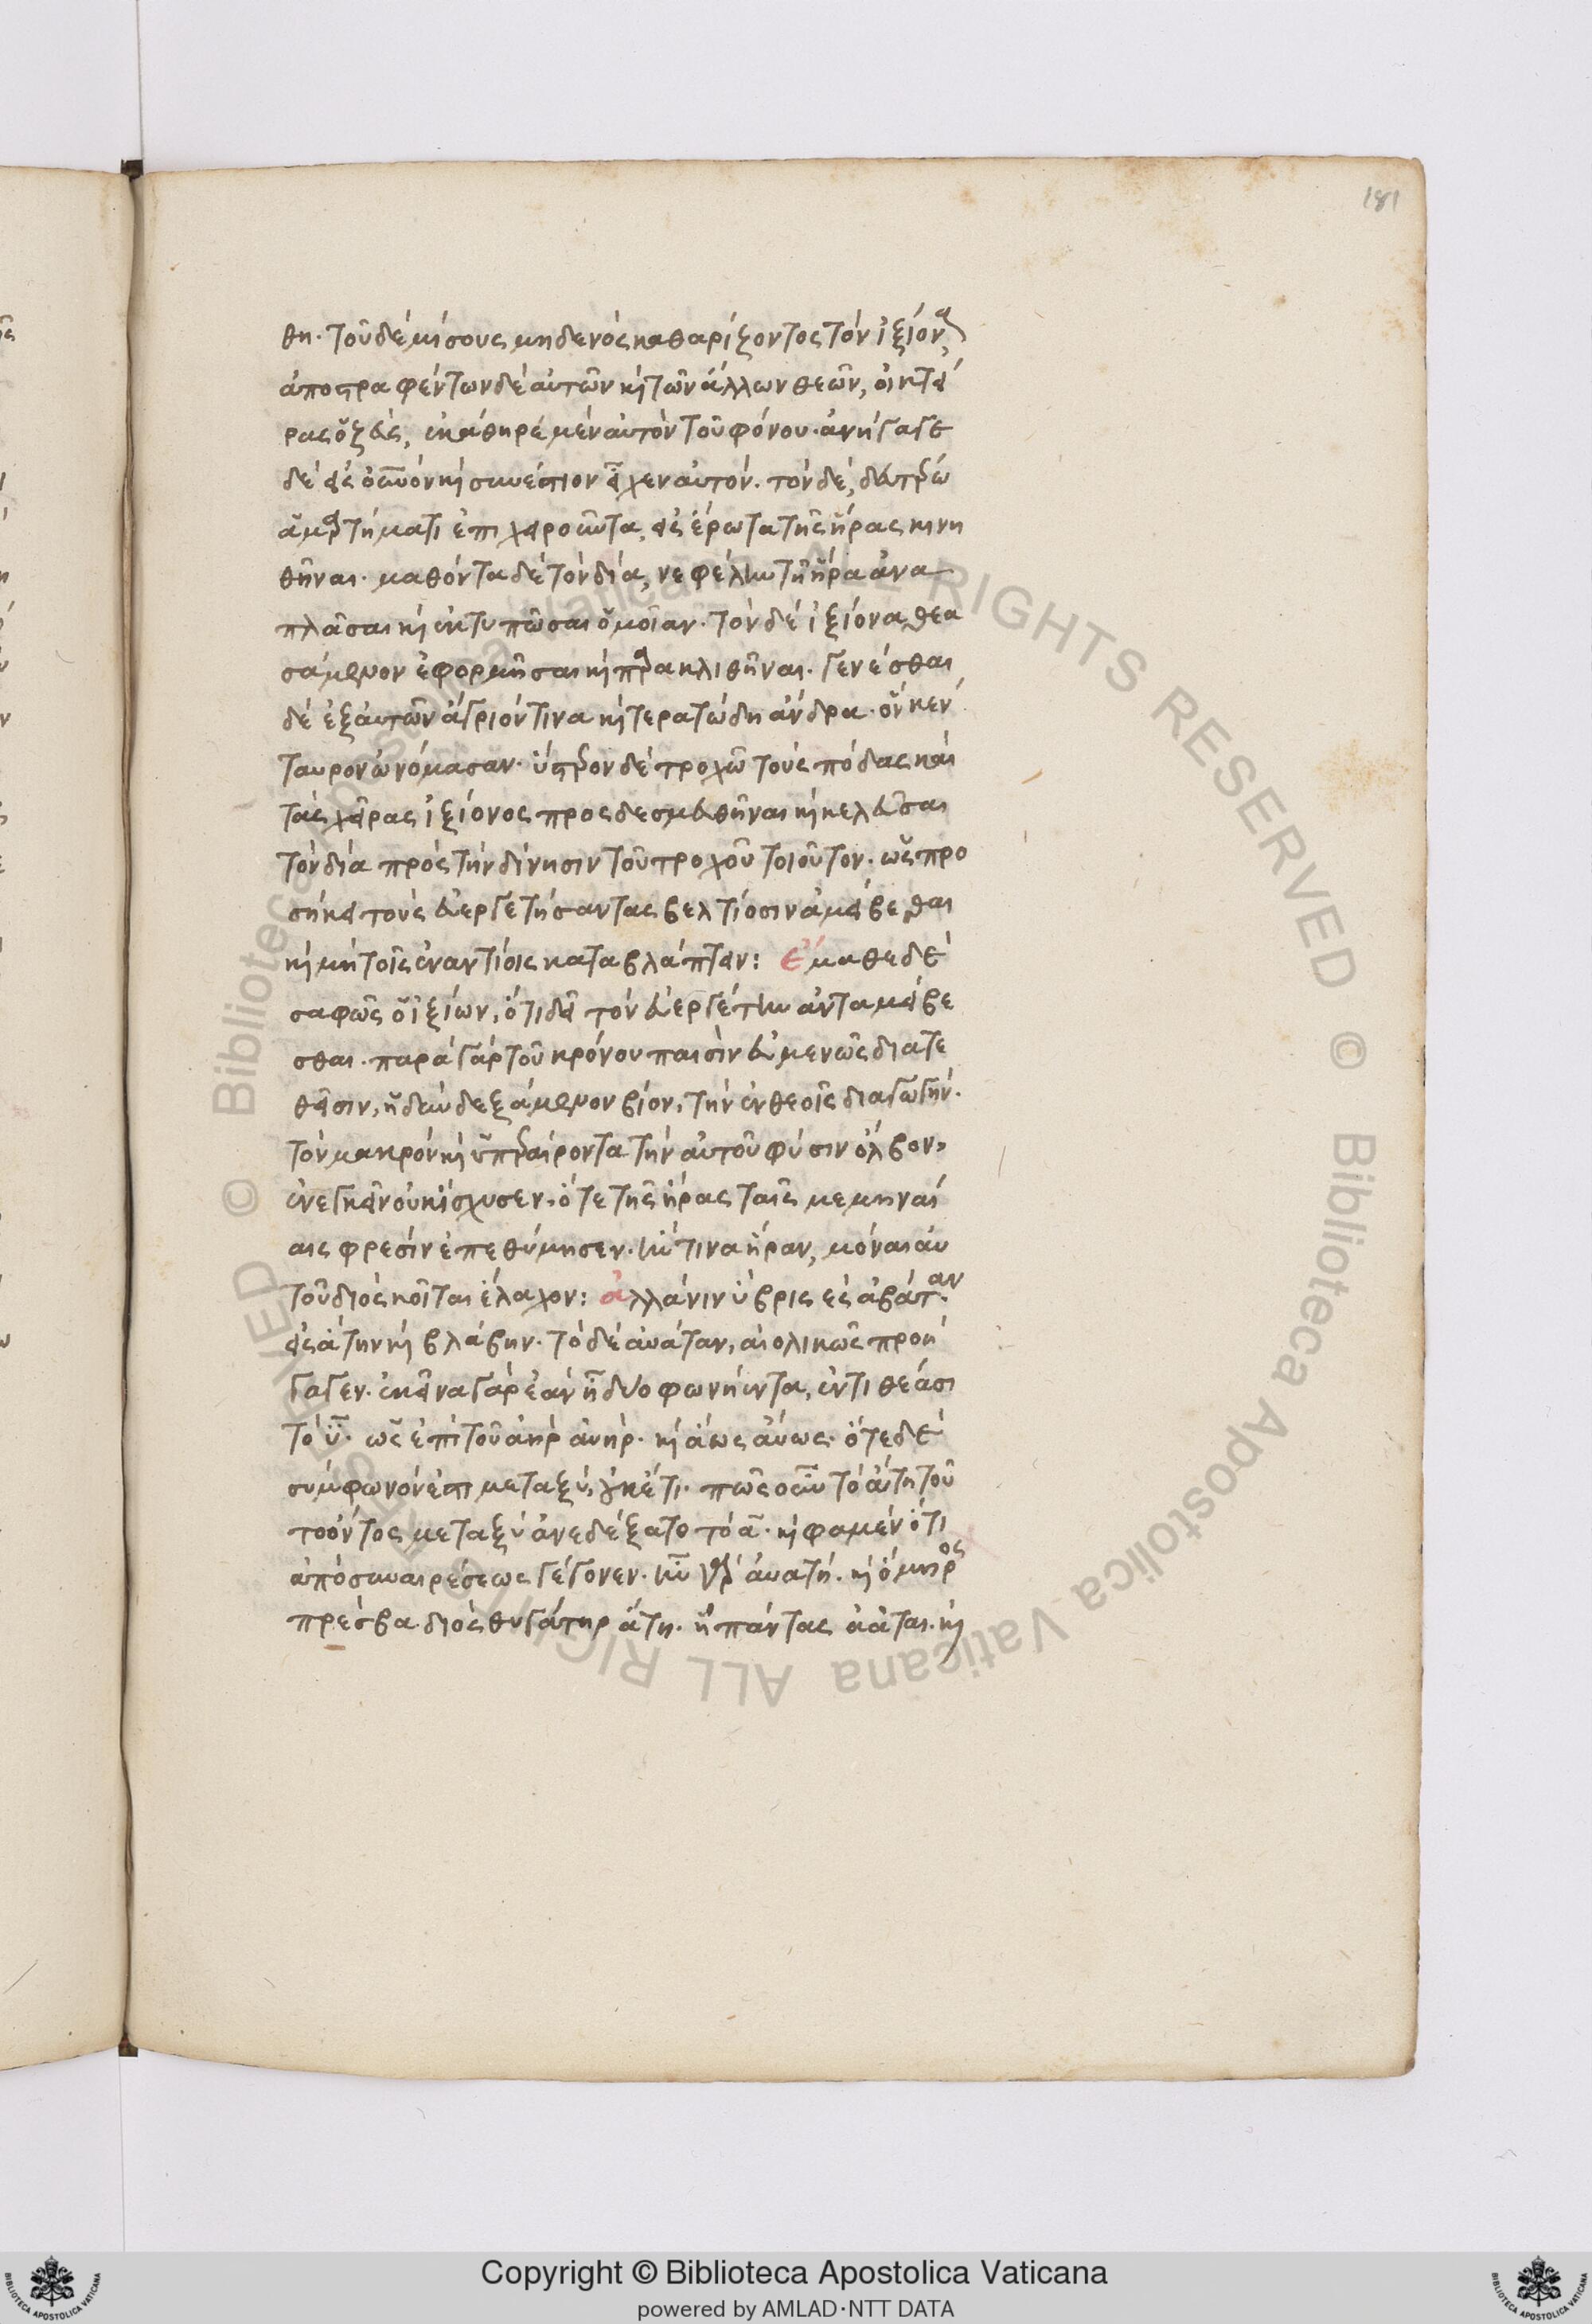 181
θη. τοῦ δὲ μίσους μηδενὸς καθαρίζοντος τὸν ἰξίονα,
ἀποστραφέντων δὲ αὐτὸν κ τῶν ἄλλων θεῶν, οἰκτεί
ρας ὁ ζεὺς, ἐκάθηρέ μὲν αὐτὸν τοῦ φόνου. ἀνήγαγε
δὲ εἰς οὐνὸν κ συνέστιον εἶχεν αὐτόν. τὸν δὲ, δευτέρω
ἁμαρτήματι ἐπιχειροῦντα, εἰς ἔρωτα τῆς ἥρας κινη
θῆναι. μαθόντα δὲ τὸν δία, νεφέλην τῆ ἥρα ἀνα
πλᾶσαι κ ἐκτυπῶσαι ὁμοίαν. τὸν δὲ ἰξίονα θεα
σάμενον ἐφορμῆσαι κ παρακλιθῆναι. γενέσθαι
δὲ ἐξ αὐτῶν ἄγριόν τινα κ τερατώδη ἄνδρα. ὃν κέν
ταυρον ὠνόμασαν. ὕστερον δὲ τροχῶ τοὺς πόδας καὶ
τὰς χεῖρας ἰξίονος προσδεσμευθῆναι κ κελεῦσαι
τὸν δία πρὸς τὴν δίνησιν τοῦ τροχοῦ τοιοῦτον. ὡς προ
σήκει τοὺς εὐεργετήσαντας βελτίοσιν ἀμείβεσθαι
κ μὴ τοῖς ἐναντίοις καταβλάπτειν: ἔμαθε δὲ
σαφῶς ὁ ἰξίων, ὅτι δεῖ τὸν εὐεργέτην ἀνταμείβε
σθαι. παρὰ γὰρ τοῦ κρόνου παισὶν εὐμενῶς διατε
θεῖσιν, ἡδὺν δεξάμενον βίον, τὴν ἐν θεοῖς διαγωγήν.
τὸν μακρὸν κ ὑπεραίροντα τὴν αὐτοῦ φύσιν ὄλβον,
ἐνεγκεῖν οὐκ ἴσχυσεν. ὅτε τῆς ἥρας ταῖς μεμηναί
αις φρεσὶν ἐπεθύμησεν. ἥν τινα ἥραν, μόναι αἱ
τοῦ διὸς κοῖται ἔλαχον: ἀλλά νιν ὕβρις ἐς ἀβάταν
εἰς ἄτην κ βλάβην. τὸ δὲ ἀυάταν, αἰολικῶς προή
γαγεν. ἐκεῖνα γὰρ ἐὰν ἦ δύο φωνήεντα, ἐντιθέασι
τὸ υ. ὡς ἐπὶ τοῦ ἀὴρ ἀυήρ. κ ἀὼς αὔως. ὅτε δὲ
σύμφωνόν ἐστι μεταξὺ, οὐκέτι. πῶς οὖν τὸ ἄτη τοῦ
τ ὄντος μεταξὺ ἀνεδέξατο τὸ α. κ φαμὲν ὅτι
ἀπὸ συναιρέσεως γέγονεν. ἦν γὰρ ἀυατή. κ ὅμηρος
πρέσβα διὸς θυγάτηρ ἄτη. ἣ πάντας ἀᾶται. κ
Copyright © Biblioteca Apostolica Vaticana
powered by AMLAD·NTT DATA
© Biblioteca Apostolica Vaticana ALL RIGHTS RESERVED